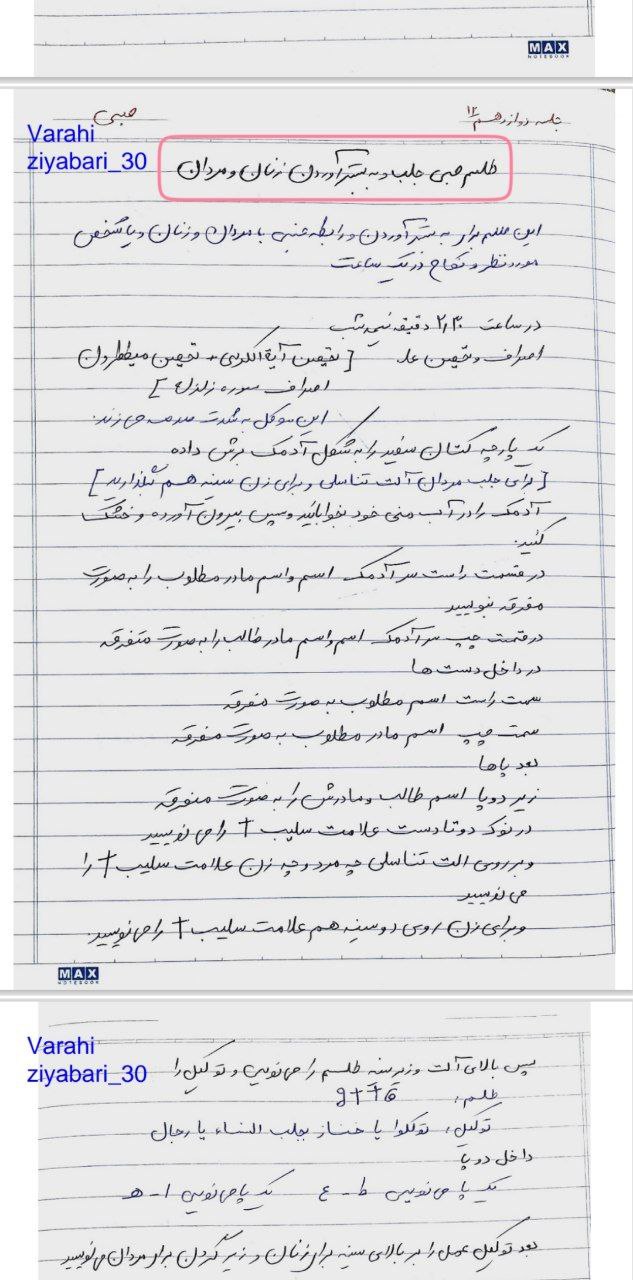 MAX
NOTEBOOK
جلسه دوازدهم ۱۲
حبی
Varahi
ziyabari_30
طلسم حبی جلب و به بستر آوردن زنان و مردان
این طلسم برای به بستر آوردن و رابطه جنسی با مردان و زنان و یا شخص
مورد نظر و نکاح در یک ساعت
در ساعت ۲/۳۰ دقیقه نیمه شب
اصراف و تحصین عام [ تحصین آیة الکرسی +
اصراف سوره زلزال ]
این موکل به شدت صدمه می زند.
یک پارچه کتان سفید را به شکل آدمک برش داده
[ برای جلب مردان آلت تناسلی و برای زن سینه هم بگذارید ]
آدمک را در آب منی خود بخوابانید و سپس بیرون آورده و خشک
کنید.
در قسمت راست سر آدمک اسم و اسم مادر مطلوب را به صورت
مفرقه بنویسید
در قسمت چپ سر آدمک اسم و اسم مادر طالب را به صورت متفرقه
در داخل دست ها
سمت راست اسم مطلوب به صورت متفرقه
سمت چپ اسم مادر مطلوب به صورت متفرقه
بعد پاها
زیر دو پا اسم طالب و مادرش را به صورت متفرقه
در نوک دوتا دست علامت سلیب † را می نویسید
و بر روی الت تناسلی چه مرد و چه زن علامت سلیب † را
می نویسید
و برای زن روی دو سینه هم علامت سلیب † را می نویسید.
MAX
NOTEBOOK
Varahi
ziyabari_30
پس بالای آلت و زیر سینه طلسم را می نویسی و توکیل را
طلسم:
توکیل: توکلوا یا خناز بجلب النساء یا رجال
داخل دو پا
یک پا می نویسی ط - ع یک پا می نویسی ا - هـ
بعد توکیل عمل را بر بالای سینه برای زنان و زیر گردن برای مردان می نویسید